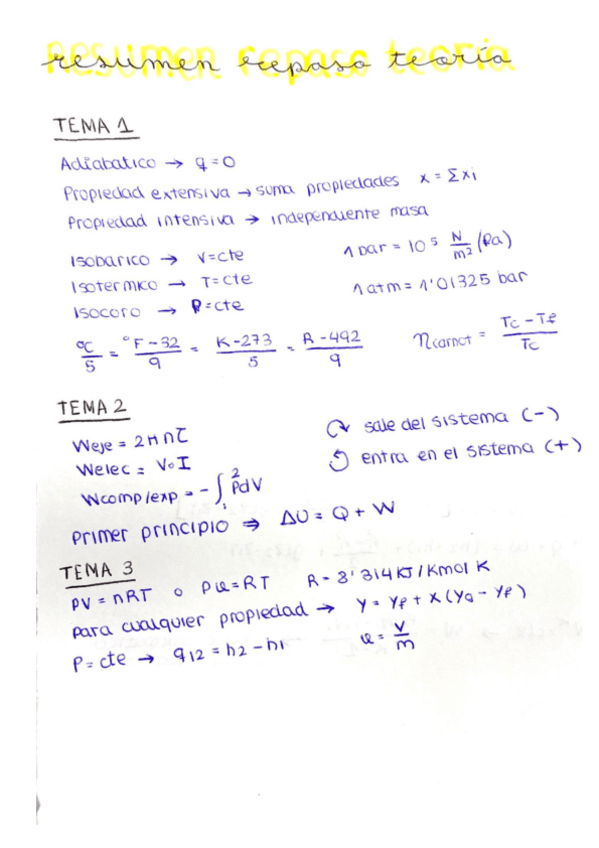 resumen repaso teoría
TEMA 1
Adiabatico → q = 0
Propiedad extensiva → suma propiedades x = Σxi
Propiedad intensiva → independiente masa
Isobarico → V=cte
Isotermico → T=cte
Isocoro → P=cte
1 bar = 10⁵ N/m² (Pa)
1 atm = 1'01325 bar
ºC/5 = (ºF-32)/9 = (K-273)/5 = (R-492)/9
ηcarnot = (Tc - Tf)/Tc
TEMA 2
Weje = 2πnτ
Welec = V·I
Wcomp/exp = - ∫₁² PdV
Primer principio ⇒ ΔU = Q + W
sale del sistema (-)
entra en el sistema (+)
TEMA 3
PV = nRT o Pv=RT R = 8'314 KJ/Kmol K
para cualquier propiedad → y = yf + x (yg - yf)
P = cte → q12 = h2 - h1 v = V/m